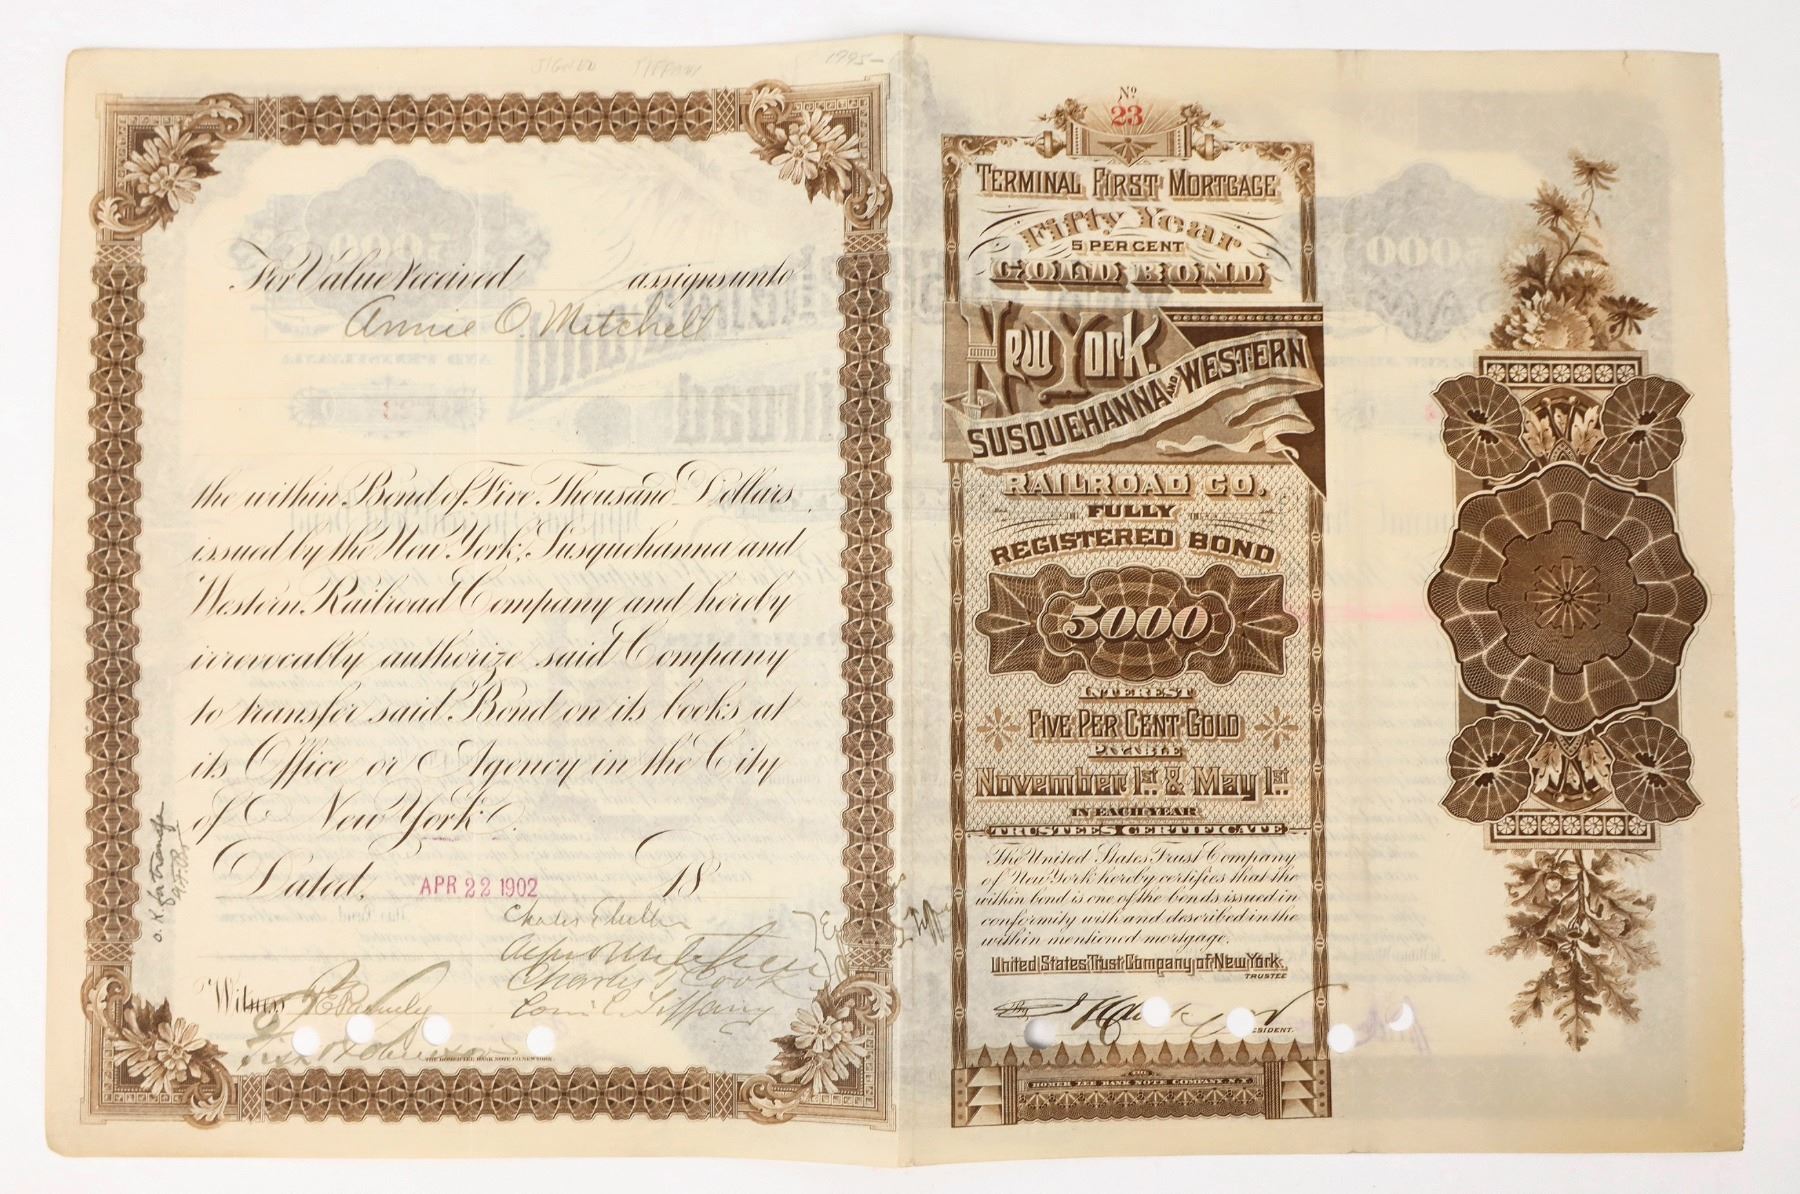 SIGNED TIFFANY 1795-
For Value received assigns unto
Annie O. Mitchell
the within Bond of Five Thousand Dollars
issued by the New York, Susquehanna and
Western Railroad Company and hereby
irrevocably authorize said Company
to transfer said Bond on its books at
its Office or Agency in the City
of New York.
Dated, APR 22 1902 18
O.K. for transfer
Charles F. Cook
Louis C. Tiffany
Witness
THE HOMER LEE BANK NOTE CO. NEW YORK.
No
23
TERMINAL FIRST MORTGAGE
Fifty Year
5 PER CENT
GOLD BOND
NEW YORK,
SUSQUEHANNA AND WESTERN
RAILROAD CO.
FULLY
REGISTERED BOND
5000
INTEREST
FIVE PER CENT GOLD
PAYABLE
November 1st & May 1st
IN EACH YEAR
TRUSTEES CERTIFICATE
The United States Trust Company
of New York hereby certifies that the
within bond is one of the bonds issued in
conformity with and described in the
within mentioned mortgage.
United States Trust Company of New York,
TRUSTEE
By
PRESIDENT.
THE
HOMER LEE BANK NOTE COMPANY, N.Y.